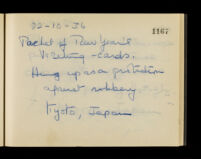 22-10-36
1167
Packet of New Year's
Visiting-cards.
Hung up as a protection
against robbery
Kyoto, Japan